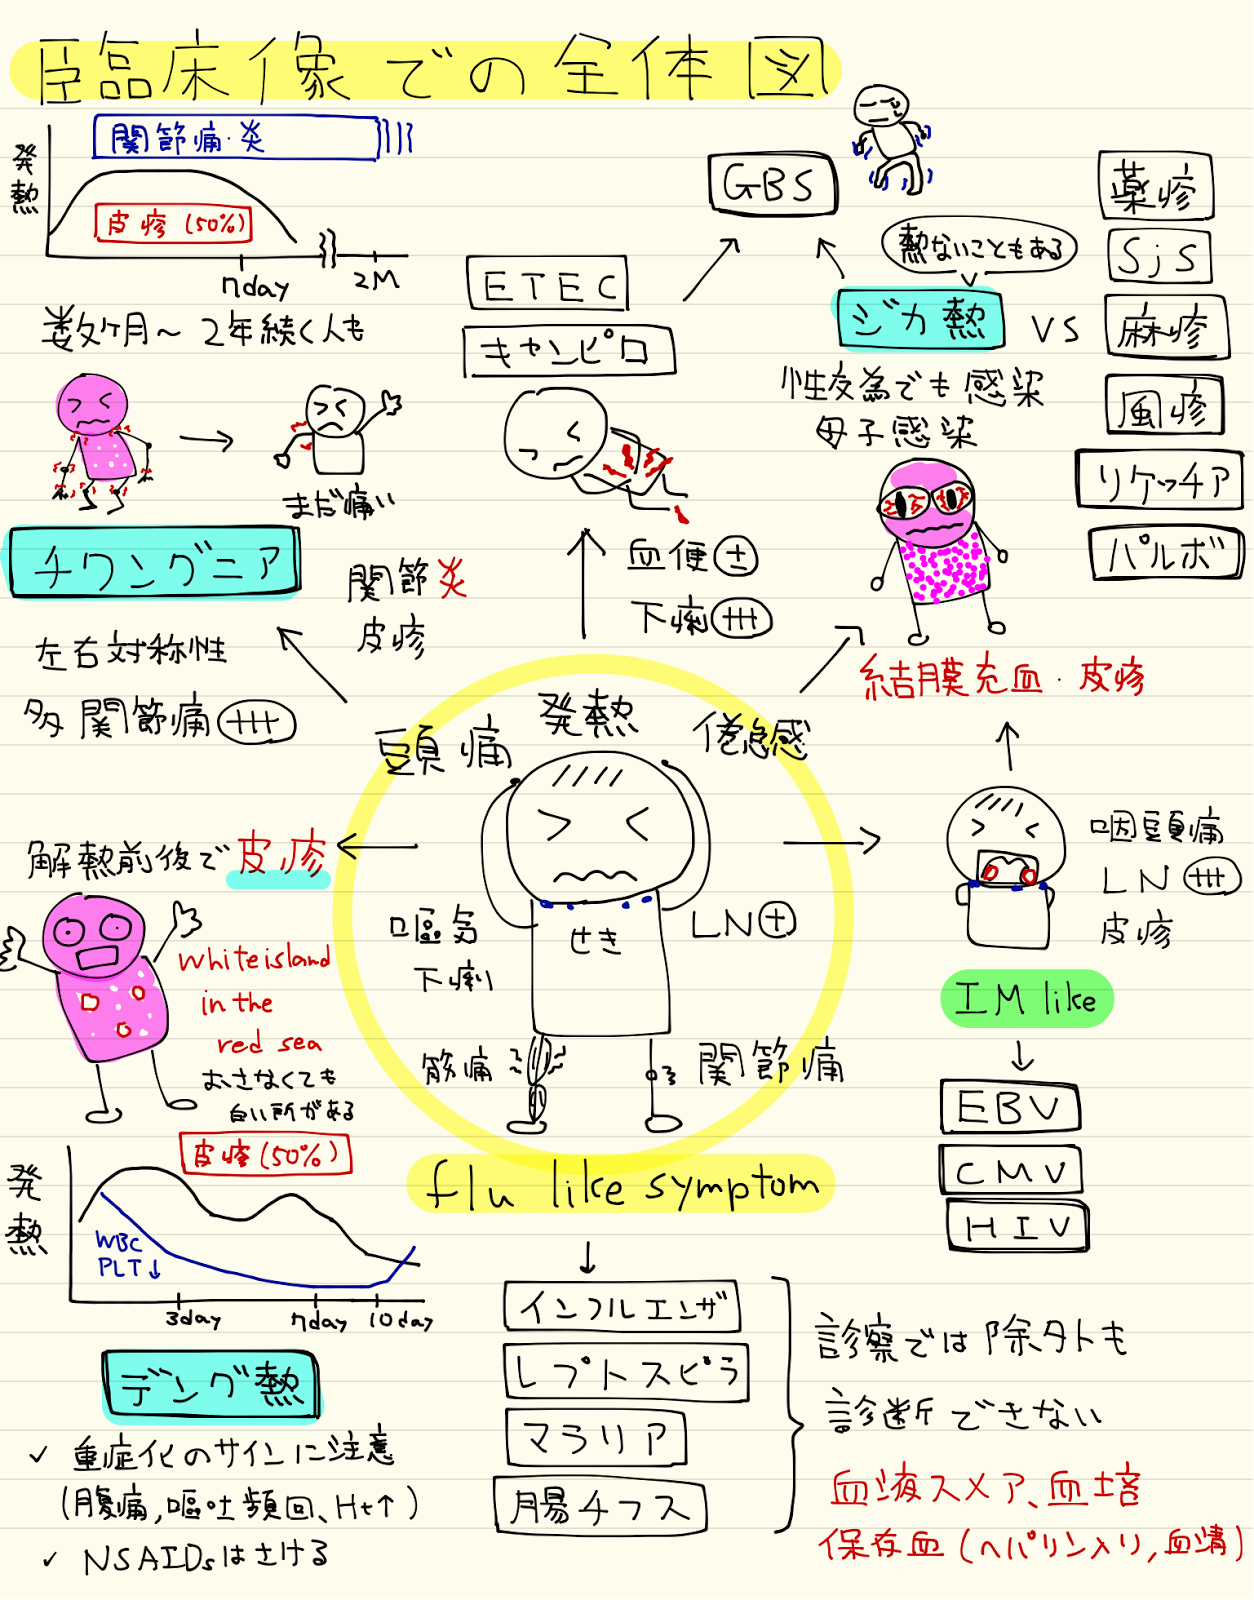 臨床像での全体図
発熱
関節痛・炎
皮疹(50%)
7day
2M
数ヶ月〜2年続く人も
まだ痛い
チクングニア
左右対称性
多関節痛(+++)
関節炎
皮疹
ETEC
キャンピロ
血便(±)
下痢(+++)
GBS
熱ないこともある
ジカ熱
vs
性行為でも感染
母子感染
結膜充血・皮疹
薬疹
SjS
麻疹
風疹
リケッチア
パルボ
頭痛
発熱
倦怠感
嘔気
下痢
せき
LN(+)
筋痛
関節痛
flu like symptom
咽頭痛
LN(+++)
皮疹
IM like
EBV
CMV
HIV
解熱前後で皮疹
white island
in the
red sea
おさなくても
白い所がある
皮疹(50%)
発熱
WBC
PLT↓
3day
7day
10day
デング熱
✓ 重症化のサインに注意
(腹痛,嘔吐頻回、Ht↑)
✓ NSAIDsはさける
インフルエンザ
レプトスピラ
マラリア
腸チフス
診察では除外も
診断できない
血液スメア、血培
保存血(ヘパリン入り,血清)